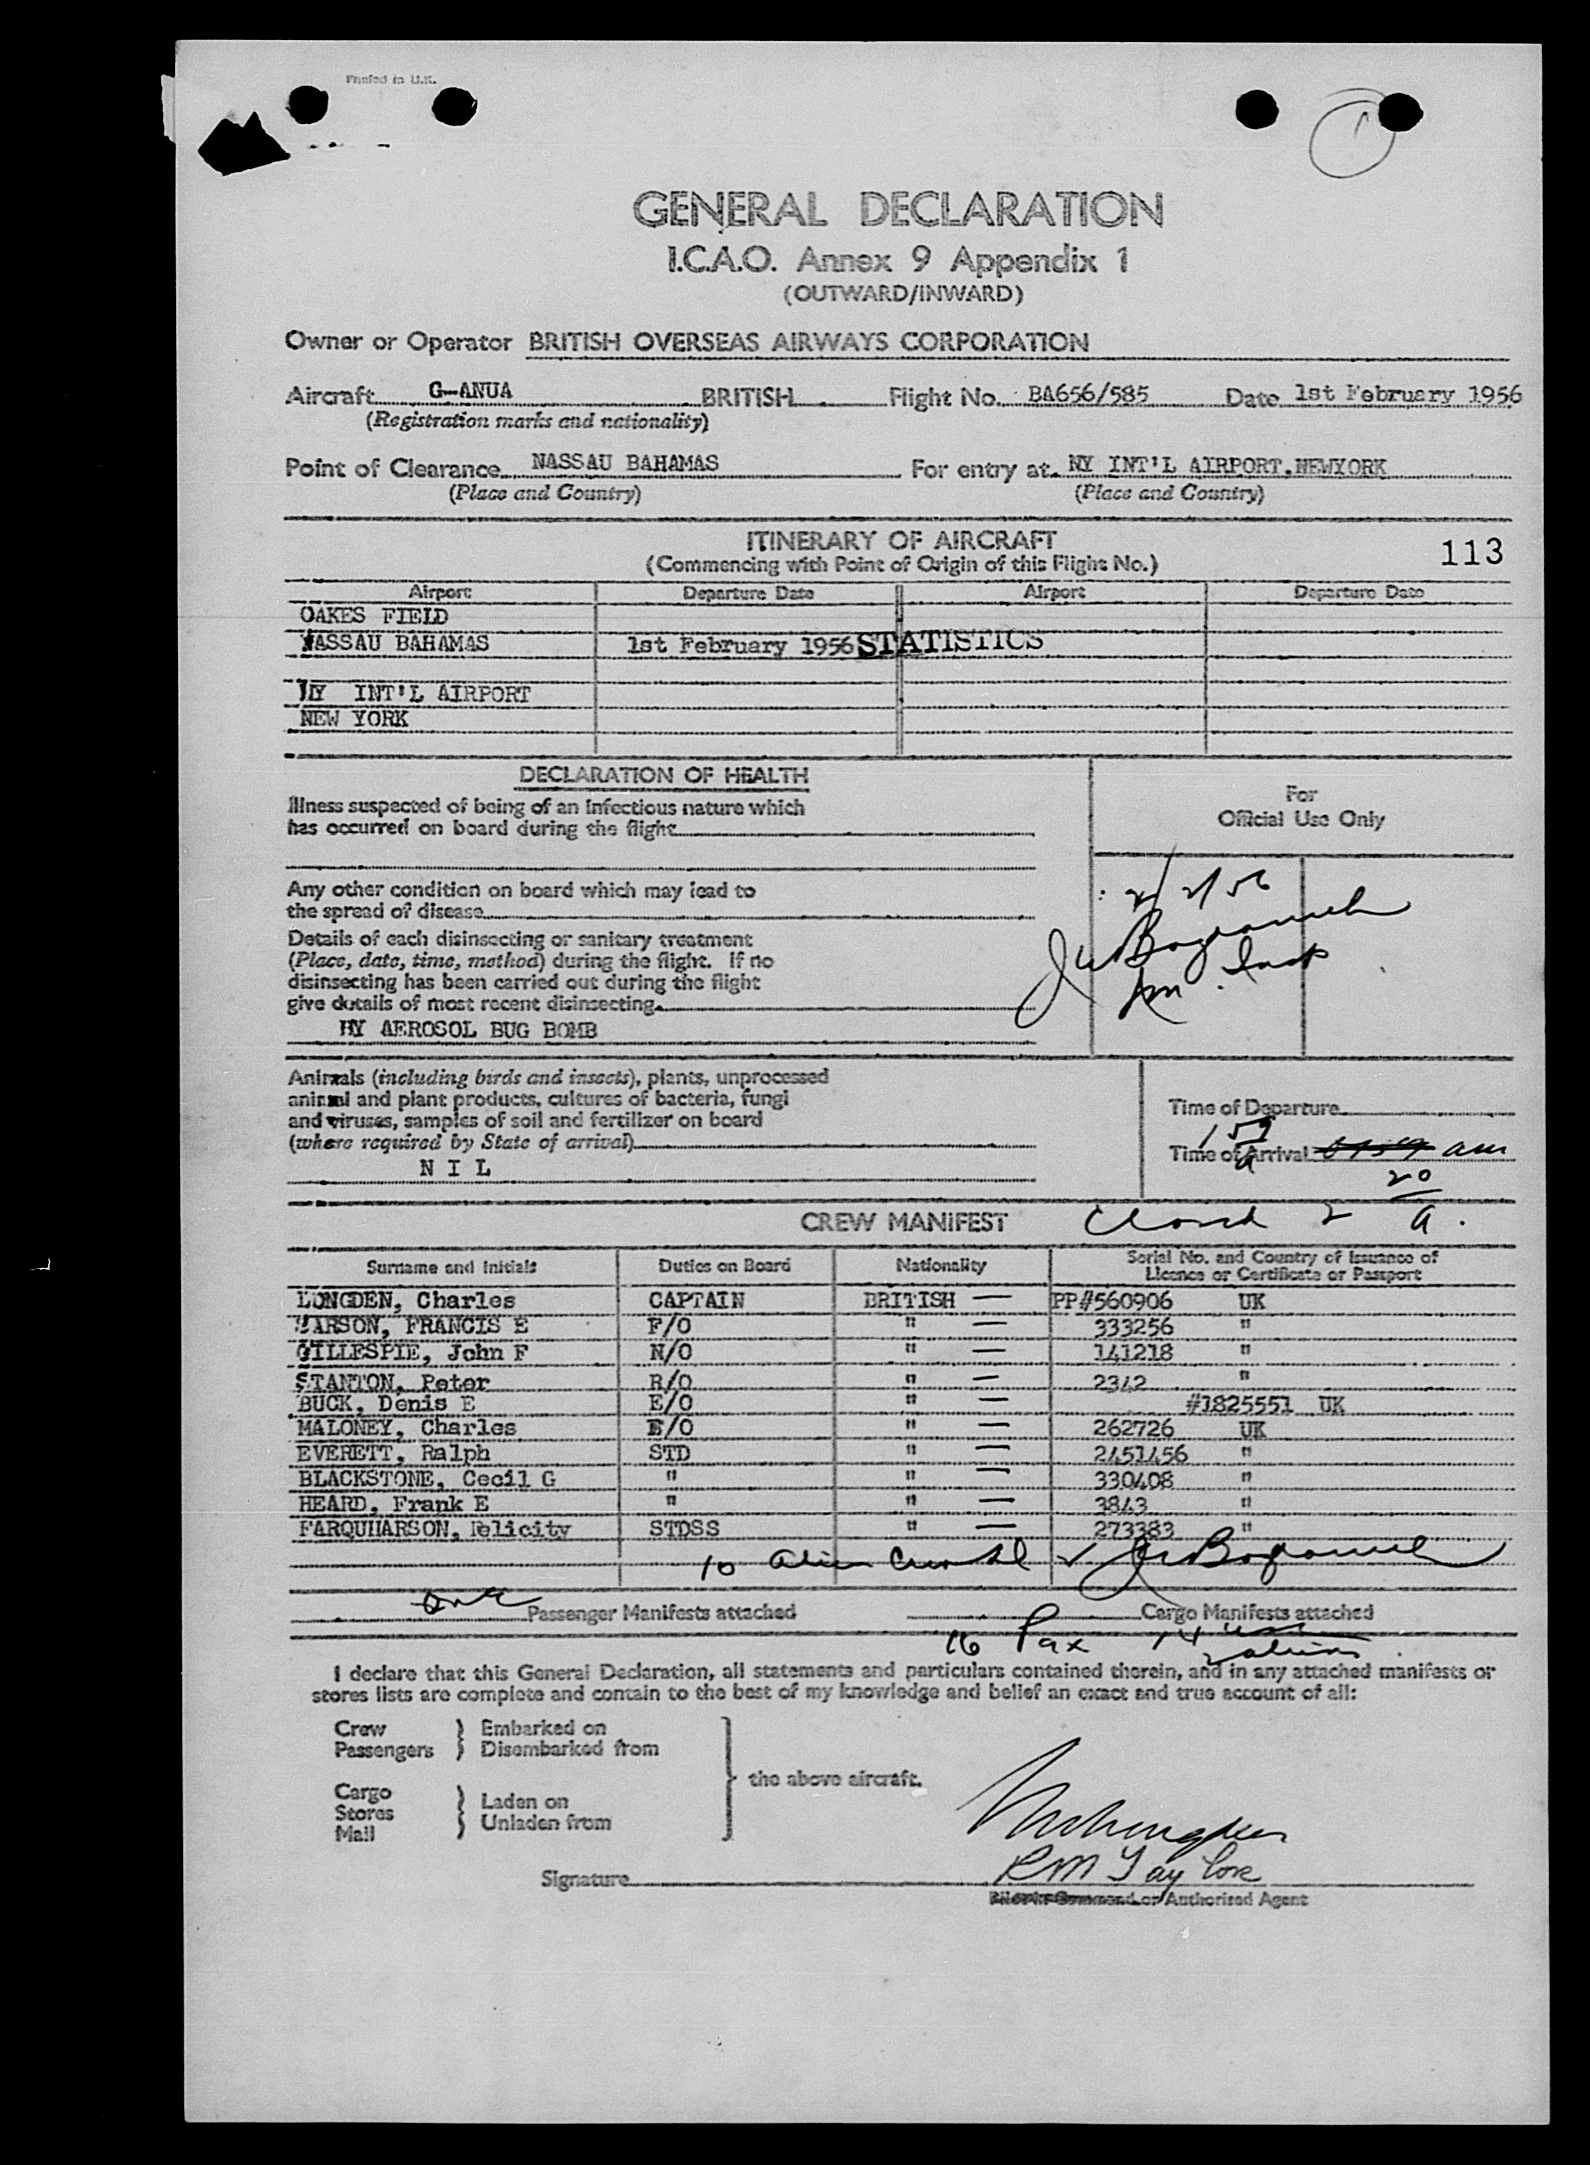 Printed in U.K.
1
GENERAL DECLARATION
I.C.A.O. Annex 9 Appendix 1
(OUTWARD/INWARD)
Owner or Operator BRITISH OVERSEAS AIRWAYS CORPORATION
Aircraft G-ANUA BRITISH Flight No. BA656/585 Date 1st February 1956
(Registration marks and nationality)
Point of Clearance NASSAU BAHAMAS For entry at NY INT'L AIRPORT, NEWYORK
(Place and Country) (Place and Country)
ITINERARY OF AIRCRAFT
(Commencing with Point of Origin of this Flight No.)
113
Airport Departure Date Airport Departure Date
OAKES FIELD
NASSAU BAHAMAS 1st February 1956 STATISTICS
NY INT'L AIRPORT
NEW YORK
DECLARATION OF HEALTH
Illness suspected of being of an infectious nature which
has occurred on board during the flight
For
Official Use Only
Any other condition on board which may lead to
the spread of disease
2/2/56
Details of each disinsecting or sanitary treatment
(Place, date, time, method) during the flight. If no
disinsecting has been carried out during the flight
give details of most recent disinsecting
BY AEROSOL BUG BOMB
Imm. Insp
Animals (including birds and insects), plants, unprocessed
animal and plant products, cultures of bacteria, fungi
and viruses, samples of soil and fertilizer on board
(where required by State of arrival)
N I L
Time of Departure
1 59 a
Time of Arrival am
Closed 2 20 a.
CREW MANIFEST
Surname and Initials Duties on Board Nationality Serial No. and Country of Issuance of
Licence or Certificate or Passport
LONGDEN, Charles CAPTAIN BRITISH — PP#560906 UK
FRANCIS E F/O " — 333256 "
GILLESPIE, John F N/O " — 141218 "
STANTON, Peter R/O " — 2342 "
BUCK, Denis E E/O " — #1825551 UK
MALONEY, Charles E/O " — 262726 UK
EVERETT, Ralph STD " — 2451456 "
BLACKSTONE, Cecil G " " — 330408 "
HEARD, Frank E " " — 3843 "
FARQUHARSON, Felicity STDSS " — 273383 "
10 alien Crew
one Passenger Manifests attached Cargo Manifests attached
16 Pax 14 usc
2 aliens
I declare that this General Declaration, all statements and particulars contained therein, and in any attached manifests or
stores lists are complete and contain to the best of my knowledge and belief an exact and true account of all:
Crew Passengers } Embarked on Disembarked from
the above aircraft.
Cargo Stores Mail } Laden on Unladen from
RM Taylor
Signature
Pilot in Command or Authorised Agent